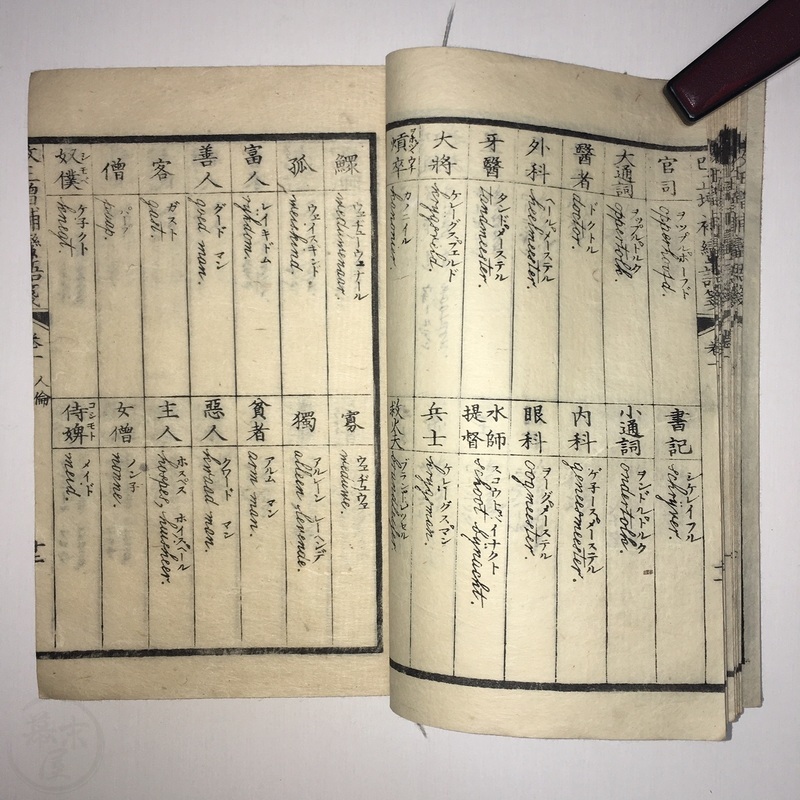 官司
ヲップルホーフト
opperhoofd.
大通詞
ヲップルトルク
oppertolk.
醫者
ドクトル
doctor.
外科
ヘールメーステル
heelmeester.
牙醫
タンドメーステル
tandmeester.
大將
ケレーグスフェルド
大
書記
シケレイフル
schrijver.
小通詞
ヲンドルトルク
ondertolk.
內科
ゲ子ースメーステル
geneesmeester.
眼科
ヲーグメーステル
oogmeester.
水師提督
schout bynacht.
兵士
ケレーグスマン
krygsman.
鰥
ウェデューウェナール
weduwenaar.
孤
ウェイスキント
weeskind.
富人
レイキドム
rykdom.
善人
グード マン
goed man.
客
ガスト
gast.
僧
パープ
paap.
奴僕
シモベ
ケ子クト
knegt.
寡
ウェデュウェ
weduwe.
獨
アルレーン レーヘンデ
alleen levende.
貧者
アルム マン
arm man.
惡人
クワード マン
kwaad man.
主人
ホスペス
hospes, huisheer.
女僧
ノン子
nonne.
侍婢
コシモト
メイド
meid.
卷一 人倫
十二